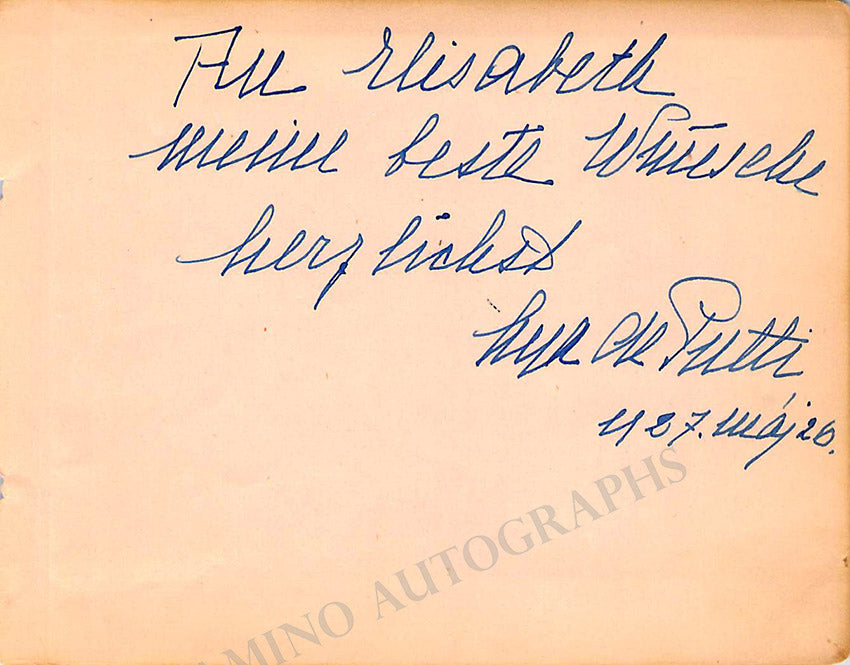 An Elisabeth
meine beste Wünsche
herzlichst
Lya de Putti
1927. máj 20.
AMINO AUTOGRAPHS